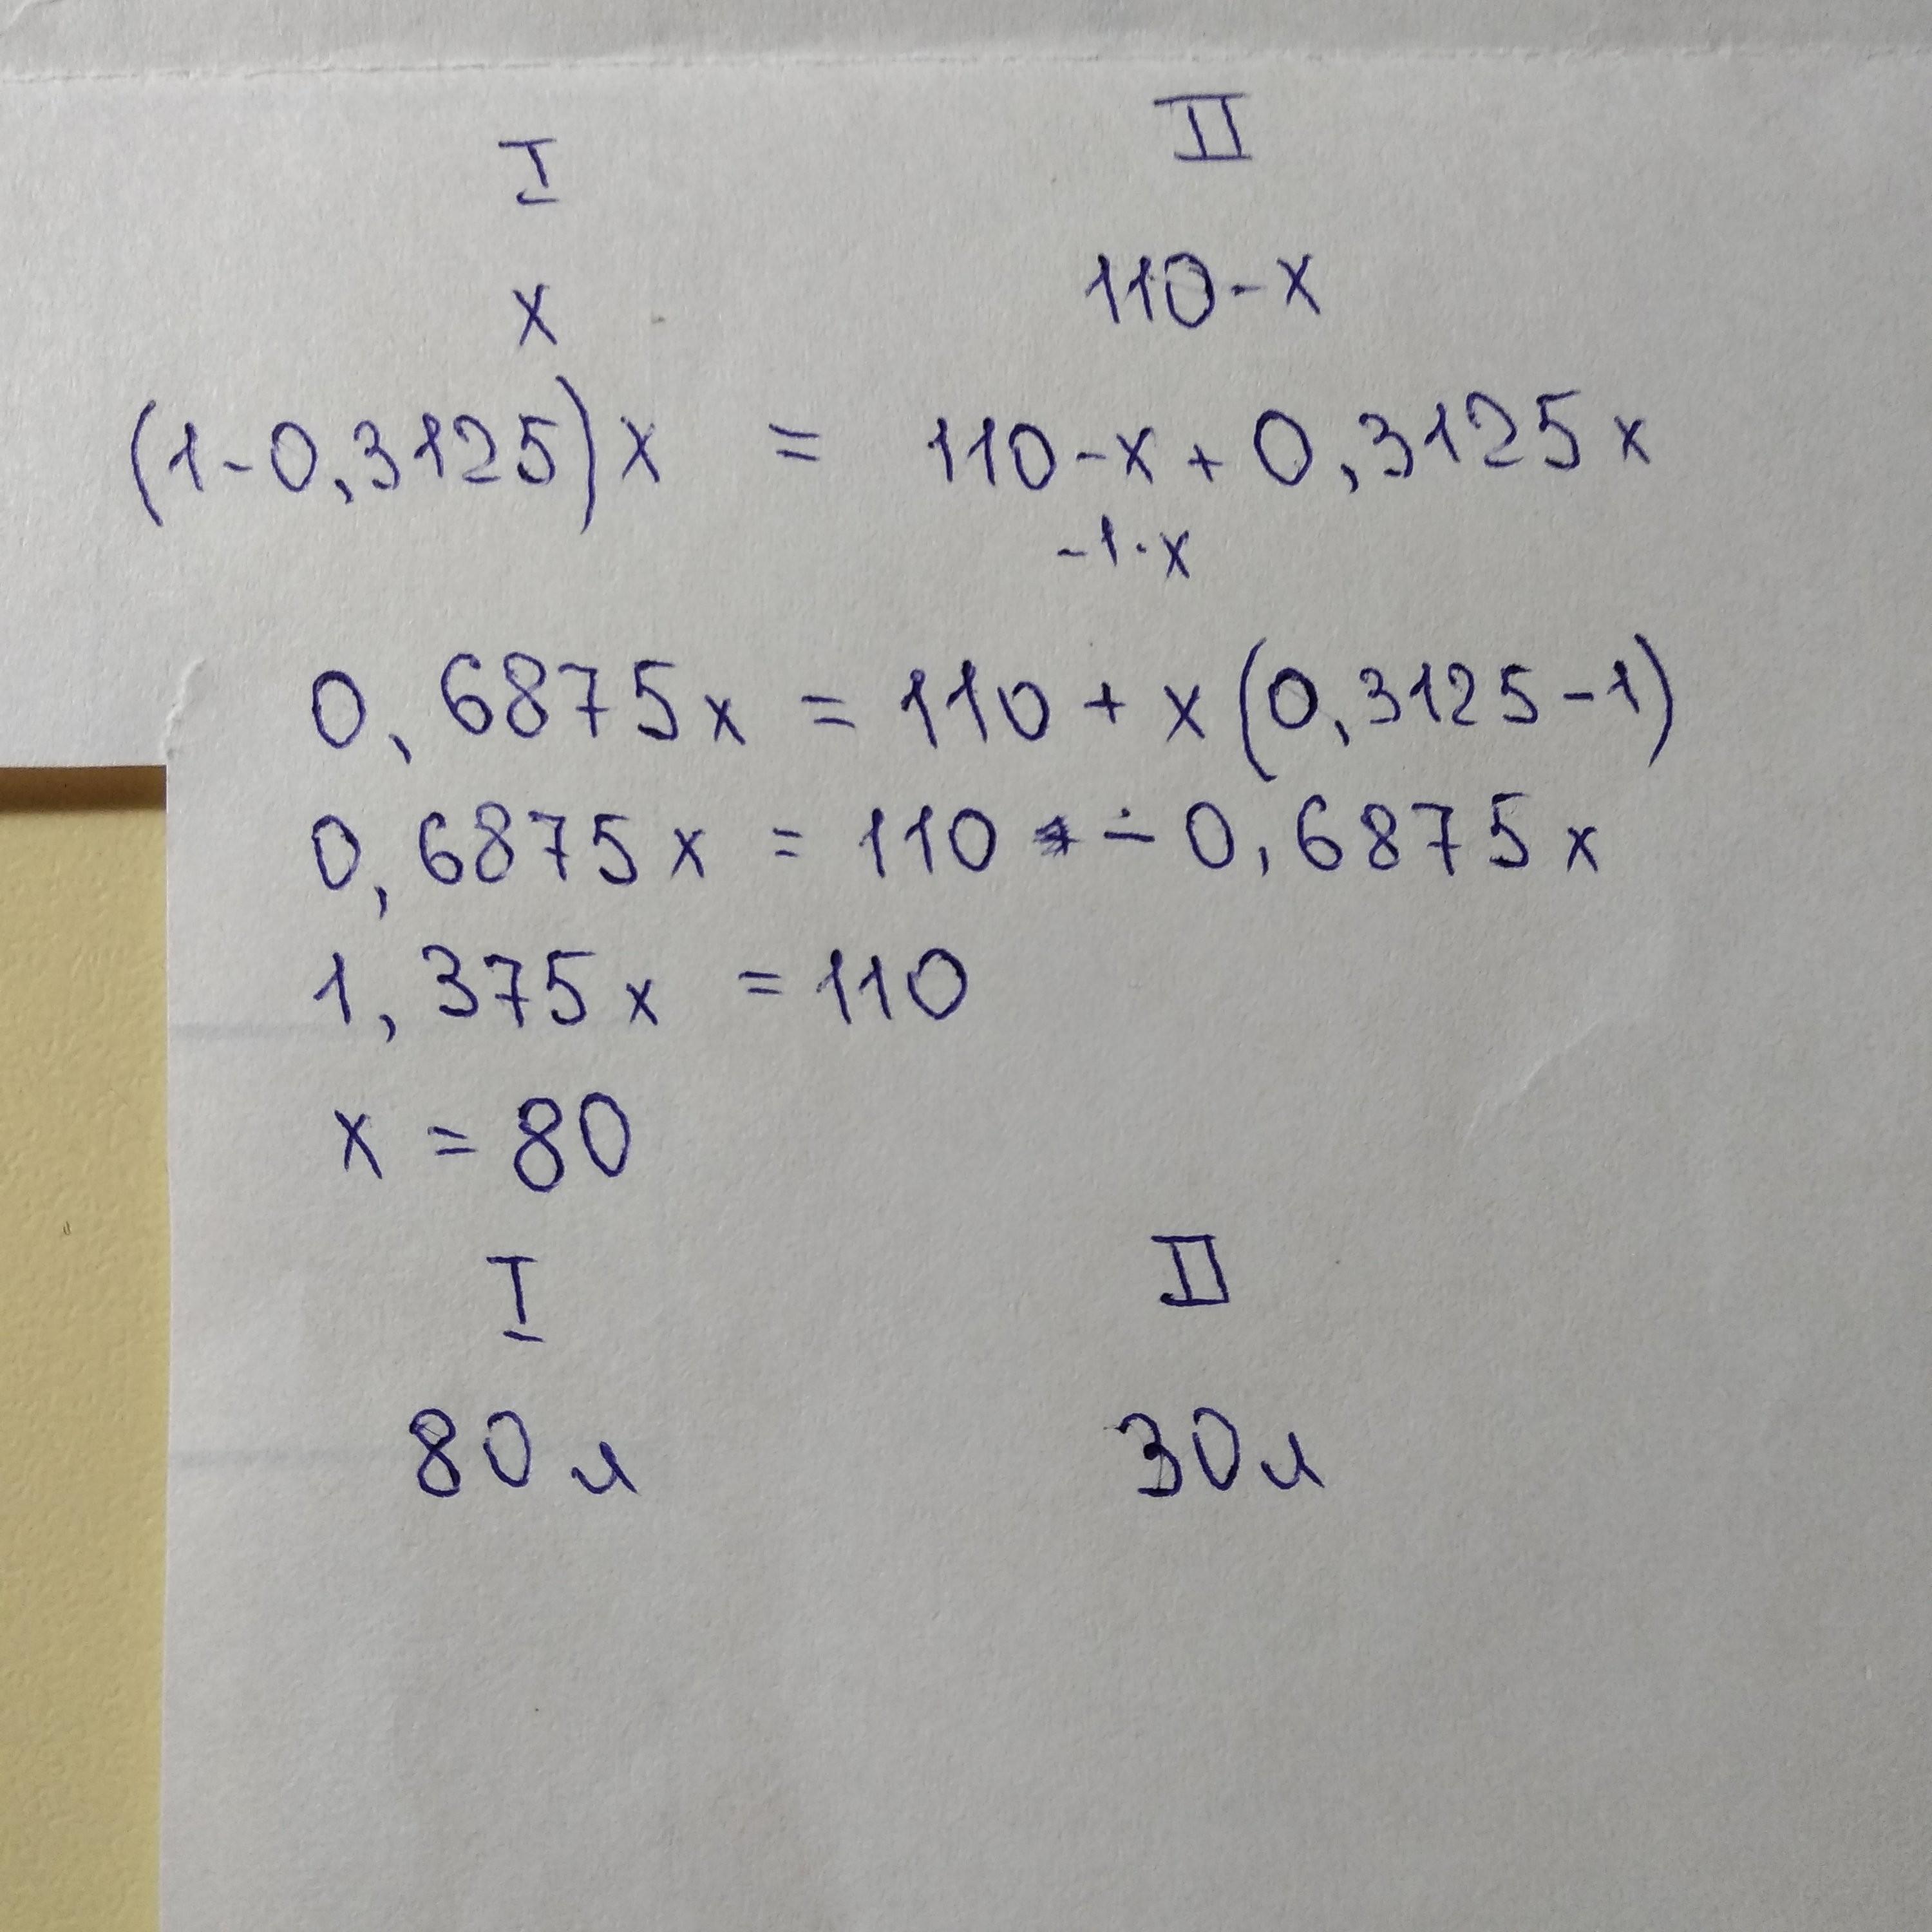 I II
x 110-x
(1-0,3125)x = 110-x+0,3125x
-1·x
0,6875x = 110+x(0,3125-1)
0,6875x = 110 - 0,6875x
1,375x = 110
x = 80
I II
80л 30л